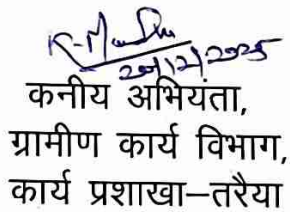 20/12/2025
कनीय अभियंता,
ग्रामीण कार्य विभाग,
कार्य प्रशाखा–तरैया